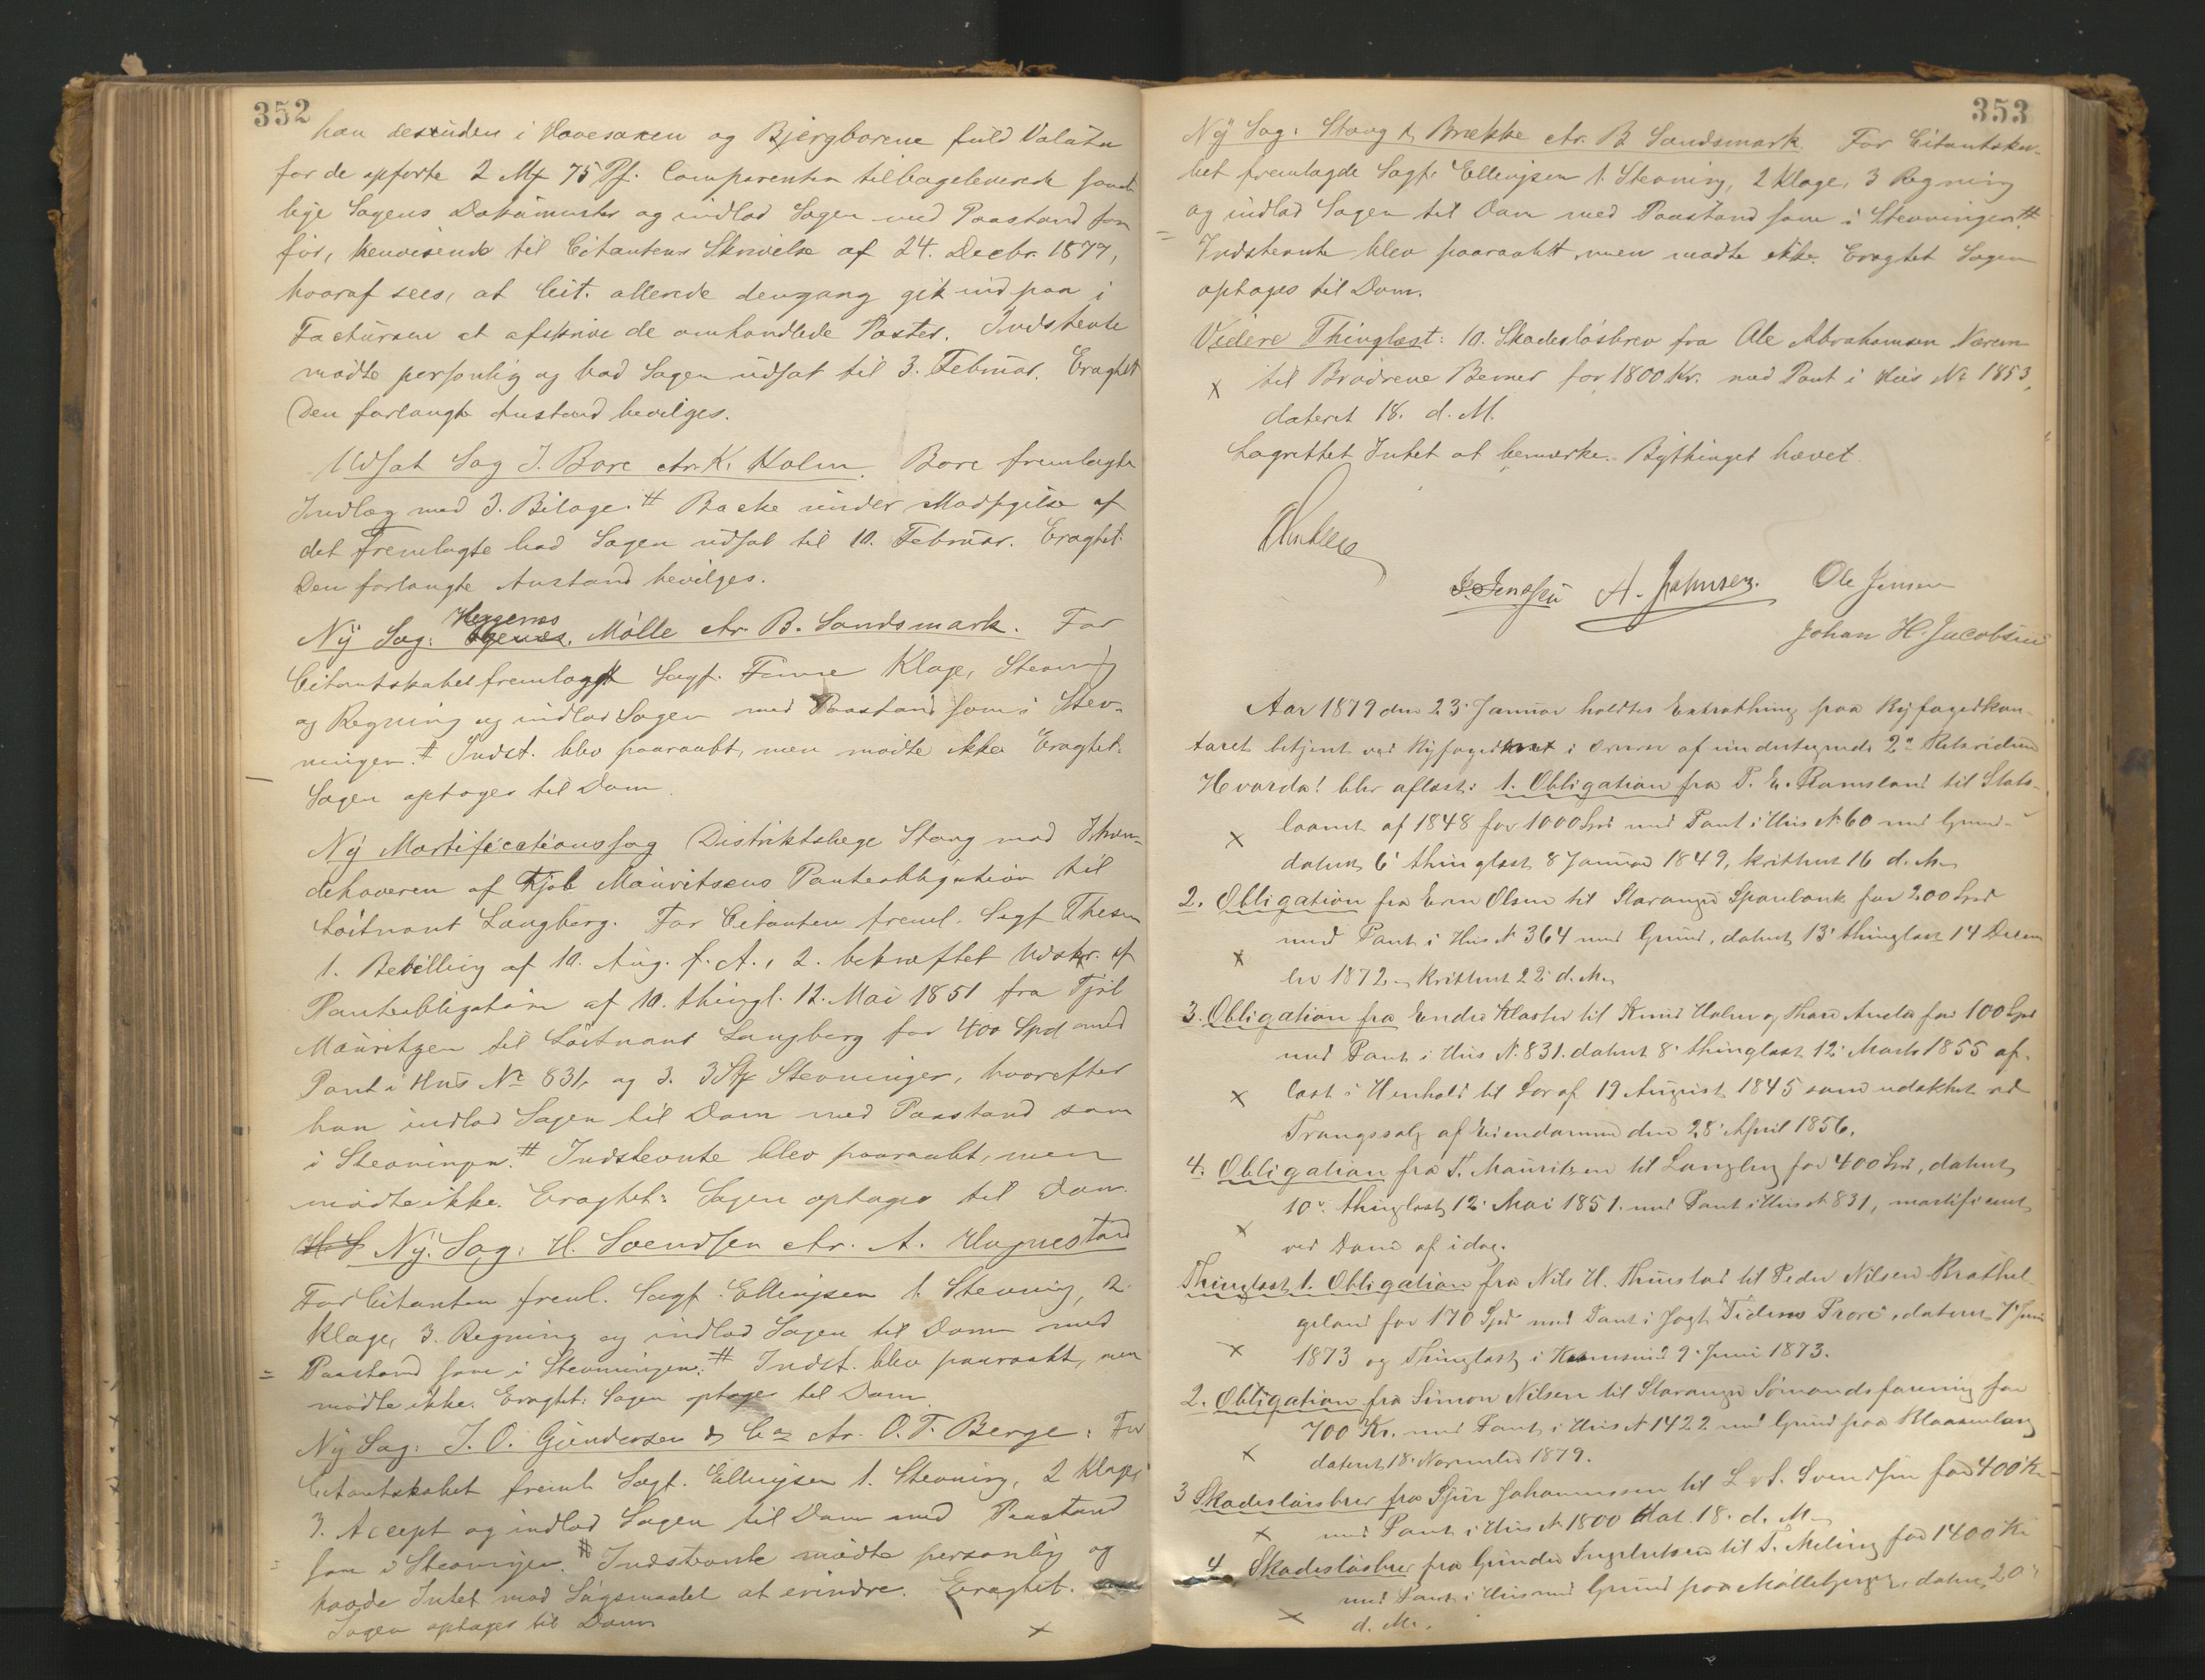 352
han desuden i Havesaxen og Bjergborene fuld Valuta
for de opførte 2 Mk 75 Pf. Comparenten tilbageleverede samt-
lige Sagens Dokumenter og indlod Sagen med Paastand som
før, henvisende til Citantens Skrivelse af 24. Decbr. 1879,
hvoraf sees, at Cit. allerede dengang gik ind paa i
Facturaen at afskrive de omhandlede Poster. Indstevnte
mødte personlig og bad Sagen udsat til 3. Februar. Eragtet
Den forlangte Anstand bevilges.
Udsat Sag J. Bore ctr. K. Holm. Bore fremlagte
Indlæg med 3. Bilage. # Backe under Modsigelse af
det fremlagte bad Sagen udsat til 10. Februar. Eragtet:
Den forlangte Anstand bevilges.
Ny Sag: Heggenes Mølle ctr. B. Sandsmark. For
Citantskabet fremlagde Sagf. Klage, Stevning
og Regning og indlod Sagen med Paastand som i Stev-
ningen. # Indst. blev paaraabt, men mødte ikke Eragtet:
Sagen optages til Dom.
Ny Mortificationssag Distriktslæge Stang mod Ihæn-
dehaveren af Kjøl Mauritsens Panteobligation til
Løitnant Langberg. For Citanten freml. Sagf. Thesen
1. Bevilling af 10. Aug. f. A., 2. bekræftet Udskr. af
Panteobligation af 10. thingl. 12. Mai 1851 fra Tjøl
Mauritzen til Løitnant Langberg for 400 Spd med
Pant i Hus No 831, og 3. 3 Stk Stevninger, hvorefter
han indlod Sagen til Dom med Paastand som
i Stevningen. # Indstevnte blev paaraabt, men
mødte ikke. Eragtet: Sagen optages til Dom.
Ny Sag: H. Svendsen ctr. A. Hognestad
For Citanten freml. Sagf. Ellingsen 1. Stevning, 2.
Klage, 3. Regning og indlod Sagen til Dom med
Paastand som i Stevningen. # Indst. blev paaraabt, men
mødte ikke. Eragtet: Sagen optages til Dom
Ny Sag: J. O. Gundersen & Co ctr. O. T. Berge: For
Citantskabet freml. Sagf. Ellingsen 1. Stevning, 2 Klage
3. Accept og indlod Sagen til Dom med Paastand
som i Stevningen. # Indstevnte mødte personlig og
havde Intet mod Søgsmaalet at erindre. Eragtet.
Sagen optages til Dom
353
Ny Sag: Stang & Brække ctr. B Sandsmark. For Citantska-
bet fremlagde Sagf. Ellingsen 1. Stevning, 2 Klage, 3 Regning
og indlod Sagen til Dom med Paastand som i Stevningen. #
Indstevnte blev paaraabt, men mødte ikke. Eragtet Sagen
optages til Dom.
Videre Thinglæst: 10. Skadesløsbrev fra Ole Abrahamsen
til Brødrene Berner for 1800 Kr. med Pant i Hus No 1853,
dateret 18. d. M.
Lagrettet Intet at bemærke. Bythinget hævet.
J. Jenssen A. Johnsen. Ole Jensen
Johan H. Jacobsen
Aar 1879 den 23' Januar holdtes Extrathing paa Byfogedkon-
toret betjent ved Byfogden i af undertegnede 2de Retsvidner
Hvorda! blev aflæst: 1. Obligation fra P. E. Ramsland til Stats-
laanet af 1848 for 1000 Spd med Pant i Hus No 60 med Grund
dateret 6' thinglæst 8 Januar 1849, kvitteret 16 d. M.
2. Obligation fra Olsen til Stavanger Sparebank for 200 Spd
med Pant i Hus No 364 med Grund, dateret 13' thinglæst 14 Decem
ber 1872, kvitteret 22' d. M.
3. Obligation fra Endre Kloster til Knud Holm og Thore for 100 Spd
med Pant i Hus N. 831. dateret 8' thinglæst 12' Marts 1855 af-
læst i Henhold til Lov af 19 August 1845 som udslettet ved
Trangssalg af Eiendommen den 28' April 1856.
4. Obligation fra T. Mauritzen til Langberg for 400 Spd, dateret
10' thinglæst 12' Mai 1851 med Pant i Hus No 831, mortificeret
ved Dom af idag.
Thinglæst 1. Obligation fra Nils H. Thuestad til Peder Nilsen
for 170 Spd med Pant i Jagt "Tidens Prøve", dateret 7' Juni
1873 og Thinglæst i 9' Juni 1873.
2. Obligation fra Simon Nilsen til Stavanger Sømandsforening for
700 Kr. med Pant i Hus No 1422 med Grund paa
dateret 18' November 1879.
3 Skadesløsbrev fra Sjur Johannessen til L & S. Svendsen for 400 Kr
med Pant i Hus No 1800 dat. 18. d. M.
4 Skadesløsbrev fra Gunder Ingebretsen til T. Meling for 1400 Kr
med Pant i Hus med Grund paa Møllebjerget, dateret 20'
d. M.